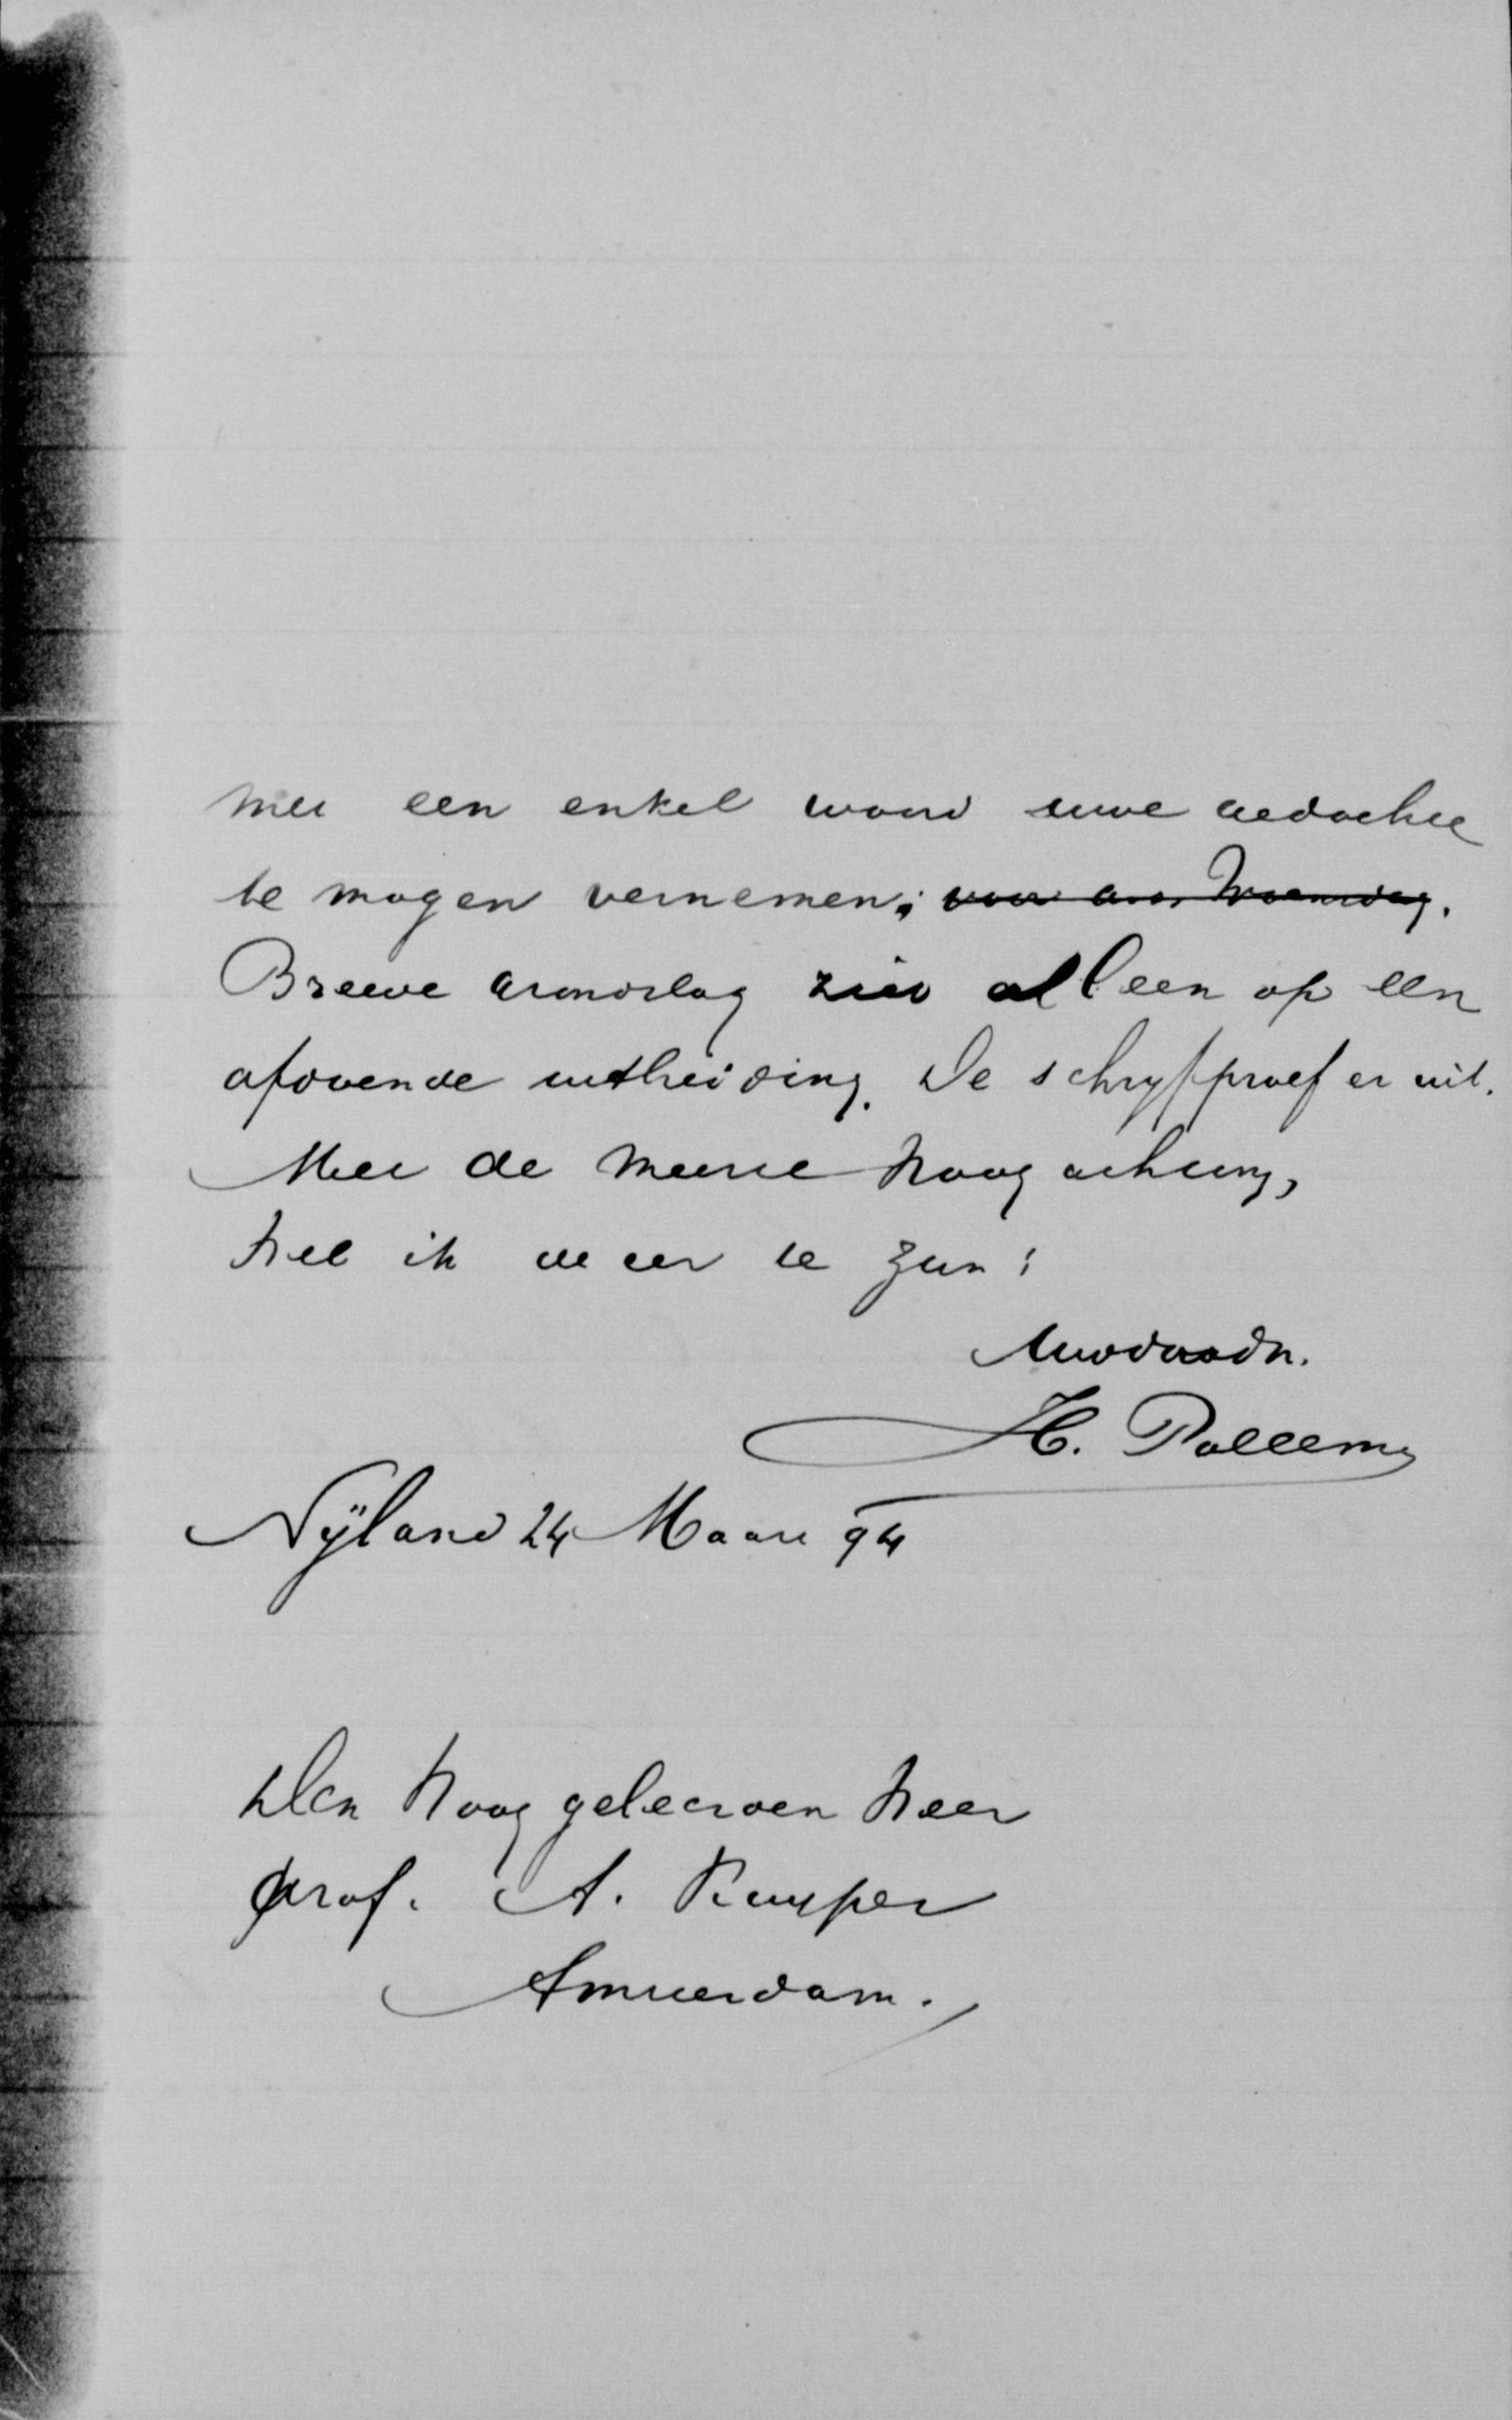 met een enkel woord uwe gedachte
te mogen vernemen; voor a.s. Woensdag.
Breede grondslag ziet alleen op een
afdoende uitbreiding. De schryfproef er uit.
Met de meeste hoogachting,
heb ik de eer te zyn:
Uwdwdn.
H. Pollema
Nÿland 24 Maart 94
Den hoog geleerden heer
prof. A. Kuyper
Amsterdam.